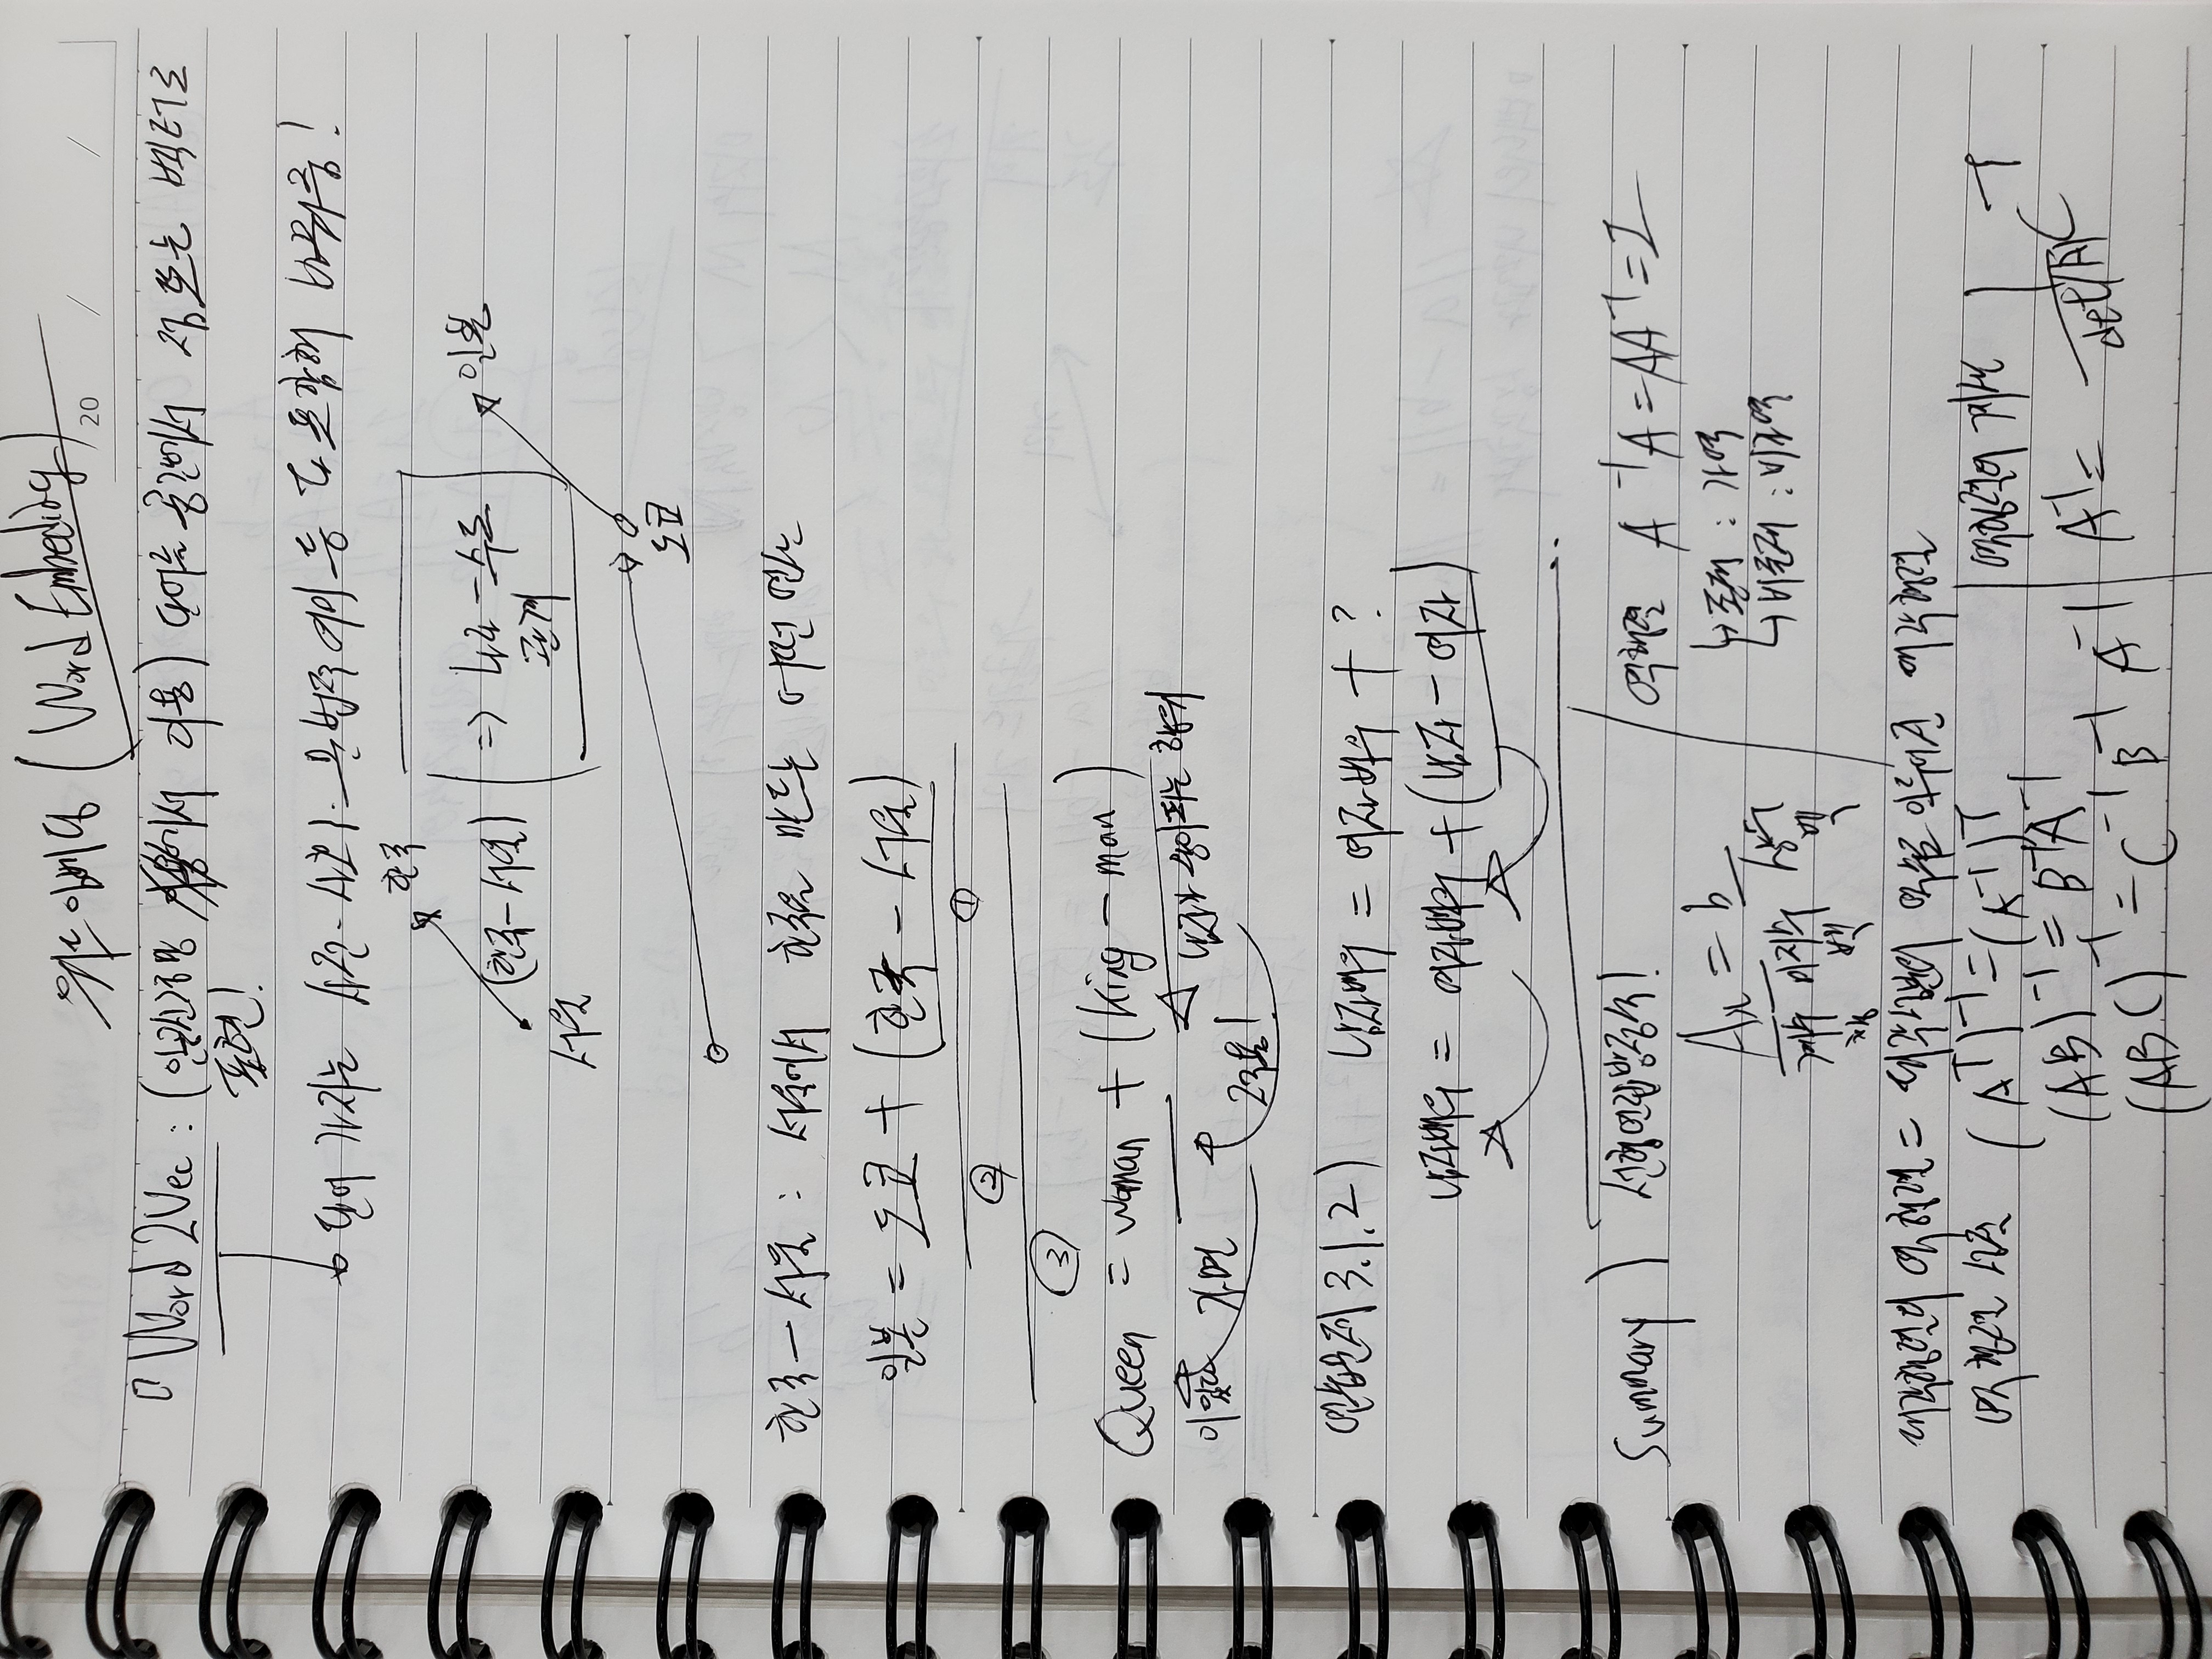 워드 임베딩 (Word Embeding)
20 / /
Word 2Vec : (인공신경망 에서 이용) 단어를 공간에서 점 또는 벡터로
표현!
단어 가지는 문법적 의미 등 다 포함해 바꿔줌!
한국
(한국-서울)
서울
=> 나라-수도
관계
일본
도쿄
한국-서울 : 서울에서 한국을 만드는 어떤 연산
일본 = 도쿄 + (한국 - 서울)
①
②
③
Queen = woman + (king - man)
남자가 왕이 되는 행위
가면
적용!
연습문제 3.1.2) 남자배우 = 여자배우 + ?
남자배우 = 여자배우 + (남자 - 여자)
Summary) 선형연립방정식!
Ax = b
계수 미지수 상수
행 벡 벡
역행렬 A⁻¹A = AA⁻¹ = I
↳ 존재 : 가역
↳ 비존재 : 비가역
대각행렬의 역행렬 = 대각성분의 역수로 이루어진 대각행렬
역행렬 성질 (Aᵀ)⁻¹ = (A⁻¹)ᵀ
(AB)⁻¹ = B⁻¹A⁻¹
(ABC)⁻¹ = C⁻¹ B⁻¹ A⁻¹
역행렬의 계산
A⁻¹ = 1/det(A) Cᵀ